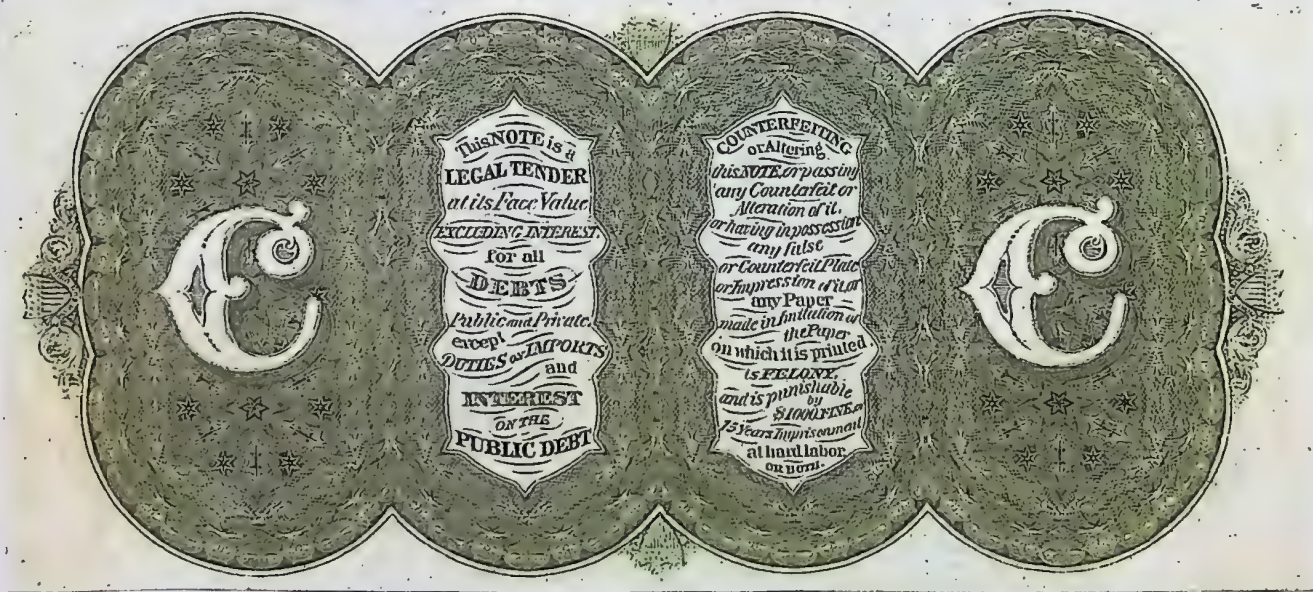 C
This NOTE is a
LEGAL TENDER
at its Face Value
EXCLUDING INTEREST
for all
DEBTS
Public and Private.
except
DUTIES on IMPORTS
and
INTEREST
ON THE
PUBLIC DEBT
COUNTERFEITING
or Altering
this NOTE, or passing
any Counterfeit or
Alteration of it,
or having in possession
any false
or Counterfeit Plate
or Impression of it, or
any Paper
made in Imitation of
the Paper
on which it is printed,
is FELONY,
and is punishable
by
$1000 FINE, or
15 Years Imprisonment
at hard labor
OR BOTH.
C